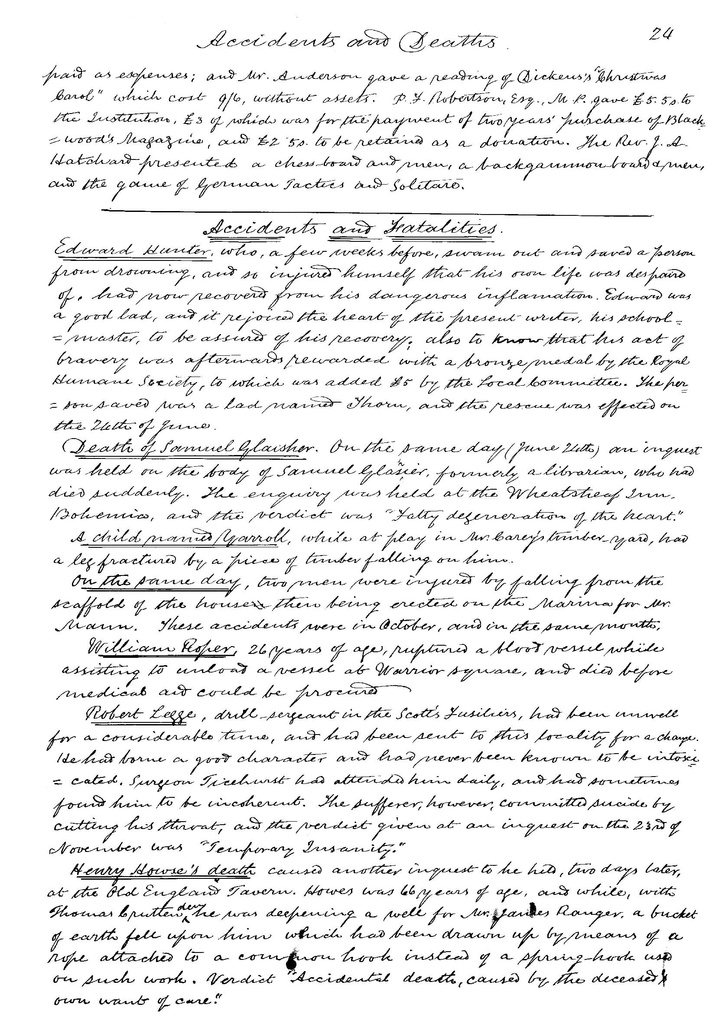 Accidents and Deaths. 24
paid as expenses; and Mr. Anderson gave a reading of Dickens's "Christmas
Carol" which cost 9/6, without assets. P. F. Robertson, Esq., M.P. gave £5.5s. to
the Institution, £3 of which was for the payment of two years' purchase of Black=
=wood's Magazine, and £2 5s. to be retained as a donation. The Rev. J. A.
Hatchard presented a chess-board and men, a backgammon board & men,
and the game of German Tactics and Solitare.
Accidents and Fatalities.
Edward Hunter, who, a few weeks before, swam out and saved a person
from drowning, and so injured himself that his own life was despaired
of, had now recovered from his dangerous inflamation. Edward was
a good lad, and it rejoiced the heart of the present writer, his school=
=master, to be assured of his recovery; also to know that his act of
bravery was afterwards rewarded with a bronze medal by the Royal
Humane Society, to which was added £5 by the Local Committee. The per=
=son saved was a lad named Thorn, and the rescue was effected on
the 24th of June.
Death of Samuel Glaisher. On the same day (June 24th) an inquest
was held on the body of Samuel Glasier, formerly a librarian, who had
died suddenly. The enquiry was held at the Wheatsheaf Inn,
Bohemia, and the verdict was "Fatty degeneration of the heart."
A child named Yarroll, while at play in Mr. Carey's timber-yard, had
a leg fractured by a piece of timber falling on him.
On the same day, two men were injured by falling from the
scaffold of the house then being erected on the Marina for Mr.
Mann. These accidents were in October, and in the same month,
William Roper, 26 years of age, ruptured a blood vessel while
assisting to unload a vessel at Warrior square, and died before
medical aid could be procured
Robert Legge, drill-sergeant in the Scott's Fusiliers, had been unwell
for a considerable time, and had been sent to this locality for a change.
He had borne a good character and had never been known to be intoxi=
=cated. Surgeon Ticehurst had attended him daily, and had sometimes
found him to be incoherent. The sufferer, however, committed suicide by
cutting his throat, and the verdict given at an inquest on the 23rd of
November was "Temporary Insanity."
Henry Howse's death caused another inquest to be held, two days later,
at the Old England Tavern. Howes was 66 years of age, and while, with
Thomas Cruttenden, he was deepening a well for Mr. James Ranger, a bucket
of earth fell upon him which had been drawn up by means of a
rope attached to a common hook instead of a spring-hook used
on such work. Verdict "Accidental death, caused by the deceased's
own want of care."